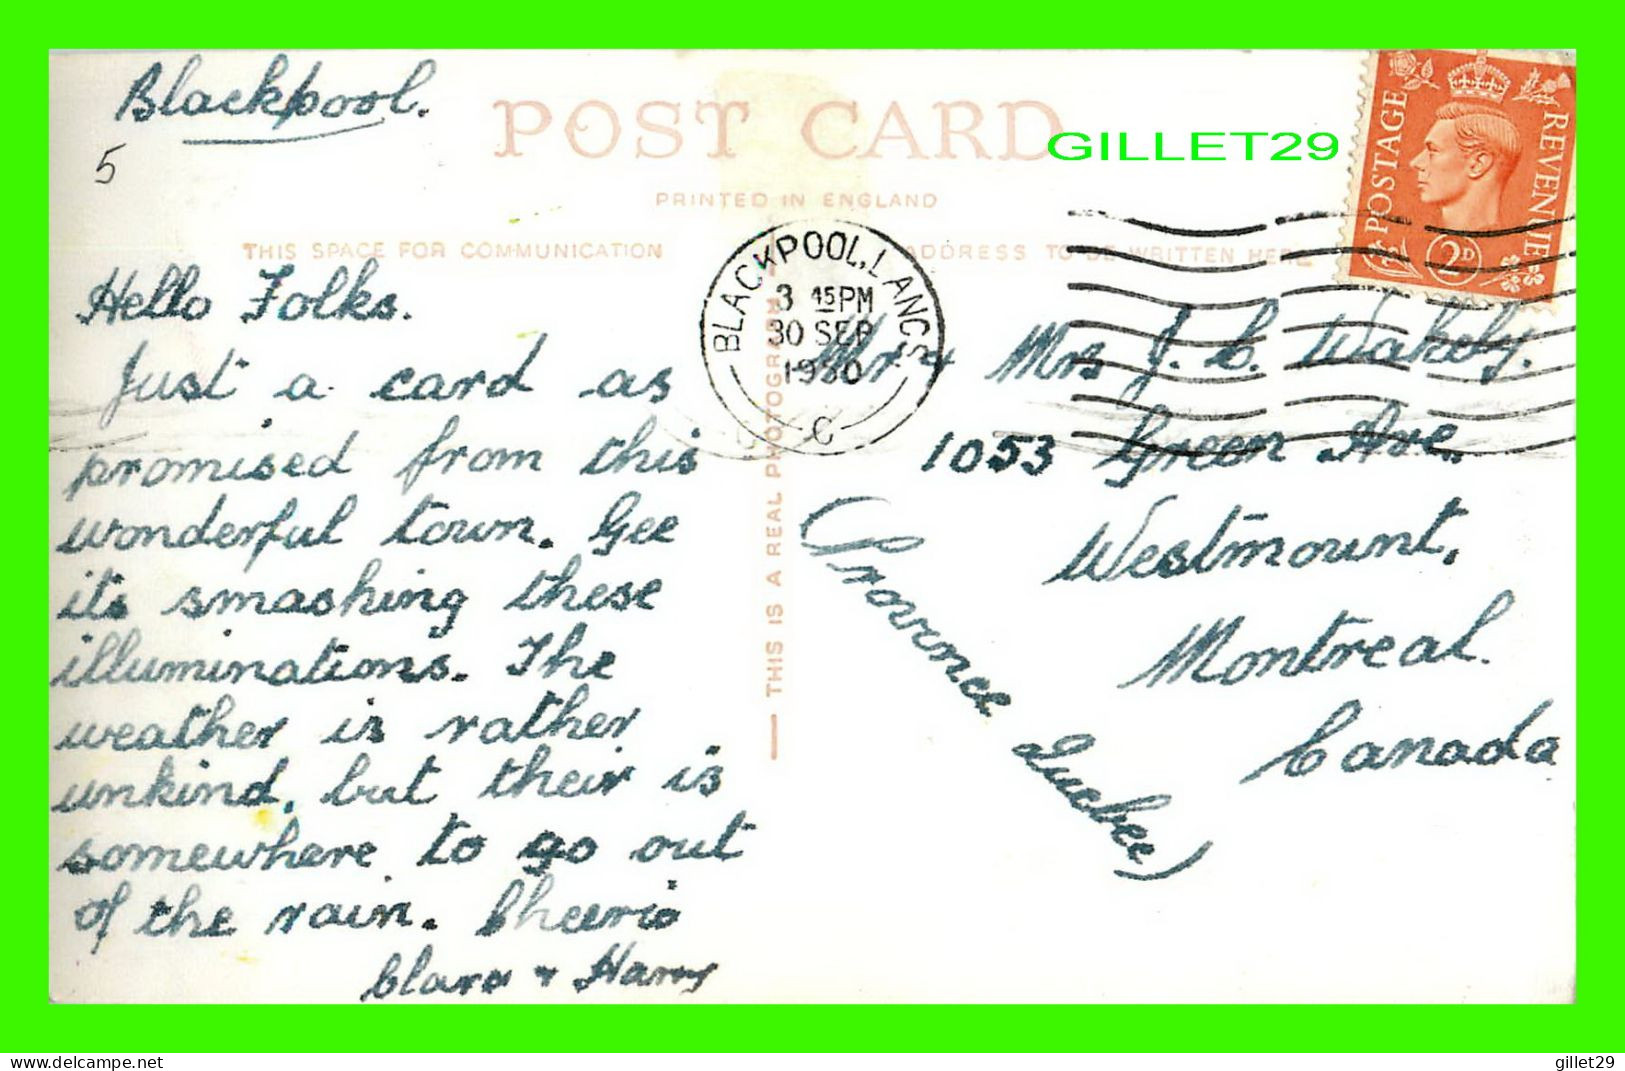 Blackpool.
5
POST CARD
GILLET29
PRINTED IN ENGLAND
THIS SPACE FOR COMMUNICATION
ADDRESS TO BE WRITTEN HERE
POSTAGE REVENUE
2D
BLACKPOOL, LANCS
3 45 PM
30 SEP
1950
C
THIS IS A REAL PHOTOGRAPH
Hello Folks.
Just a card as
promised from this
wonderful town. Gee
its smashing these
illuminations. The
weather is rather
unkind, but their is
somewhere to go out
of the rain. Cheerio
Clara + Harry
Mr + Mrs J. C. Wakely.
1053 Green Ave.
Westmount,
Montreal.
Canada
(Province Quebec)
gillet29
https://www.delcampe.net